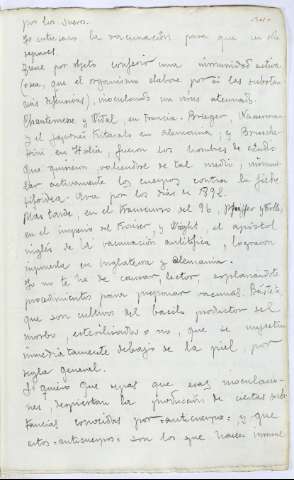 por los sueros.
Se interesara la vacunación para que
siguientes.
Tiene por objeto conferir una inmunidad activa
(osea, que el organismo elabore por si las substan-
cias defensivas), inoculando un virus atenuado.
Chantemesse y Vidal, en Francia; Brieger, Wasserman
y el japonés Kitasato en Alemania; y Brusche-
ttini en Italia, fueron los hombres de estudio
que quisieron valiendose de tal medio, inmuni-
zar activamente los cuerpos contra la fiebre
tifoidea. Era por los dias de 1892.
Mas tarde, en el transcurso del 96, Pfeiffer y Kolle,
en el imperio del Kaiser, y Wright, el apóstol
inglés de la vacunación antitífica, lograron
imponerla en Inglaterra y Alemania.
Yo no te he de cansar, lector, explanandote
procedimientos para preparar vacunas. Bástete
que son cultivos del bacilo productor del
morbo, esterilizados o no, que se inyectan
inmediatamente debajo de la piel, por
regla general.
Y quiero que sepas que esas inoculacio-
nes, despiertan la producción de ciertas subs-
tancias conocidas por "anticuerpos" y que
estos "anticuerpos" son los que hacen inmune